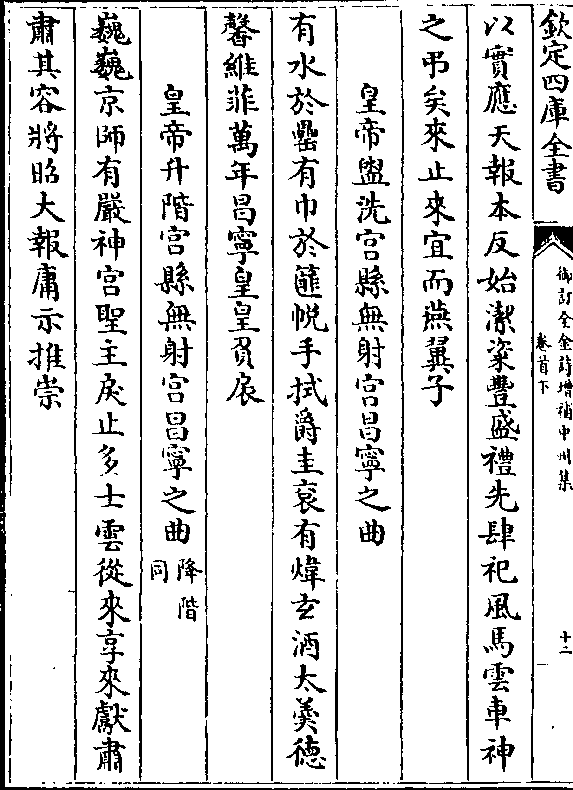 欽定四庫全書
御訂全金詩增補中州集
卷首下
十二
以實應天報本反始潔粢豐盛禮先肆祀風馬雲車神
之弔矣來止來宜而燕翼子
皇帝盥洗宫縣無射宫昌寧之曲
有水於罍有巾於篚帨手拭爵圭衮有煒玄酒太羹德
馨維菲萬年昌寧皇皇負扆
皇帝升階宫縣無射宫昌寧之曲降階同
巍巍京師有嚴神宫聖主戾止多士雲從來享來獻肅
肅其容將昭大報庸示推崇